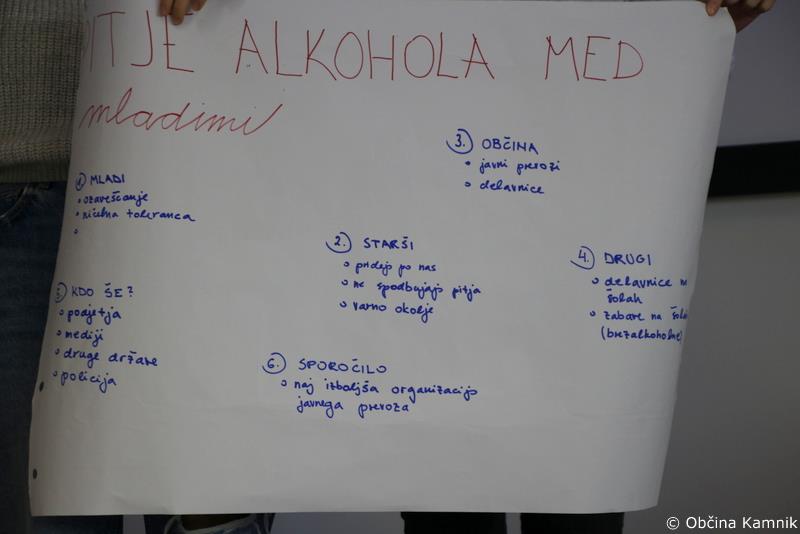 PITJE ALKOHOLA MED
mladimi
1. MLADI
• ozaveščanje
• ničelna toleranca
•
2. STARŠI
• pridejo po nas
• ne spodbujajo pitja
• varno okolje
3. OBČINA
• javni prevozi
• delavnice
4. DRUGI
• delavnice
šolah
• zabave na
(brezalkoholne)
5 KDO ŠE?
• podjetja
• mediji
• druge države
• policija
6. SPOROČILO
• naj izboljša organizacijo
javnega prevoza
© Občina Kamnik